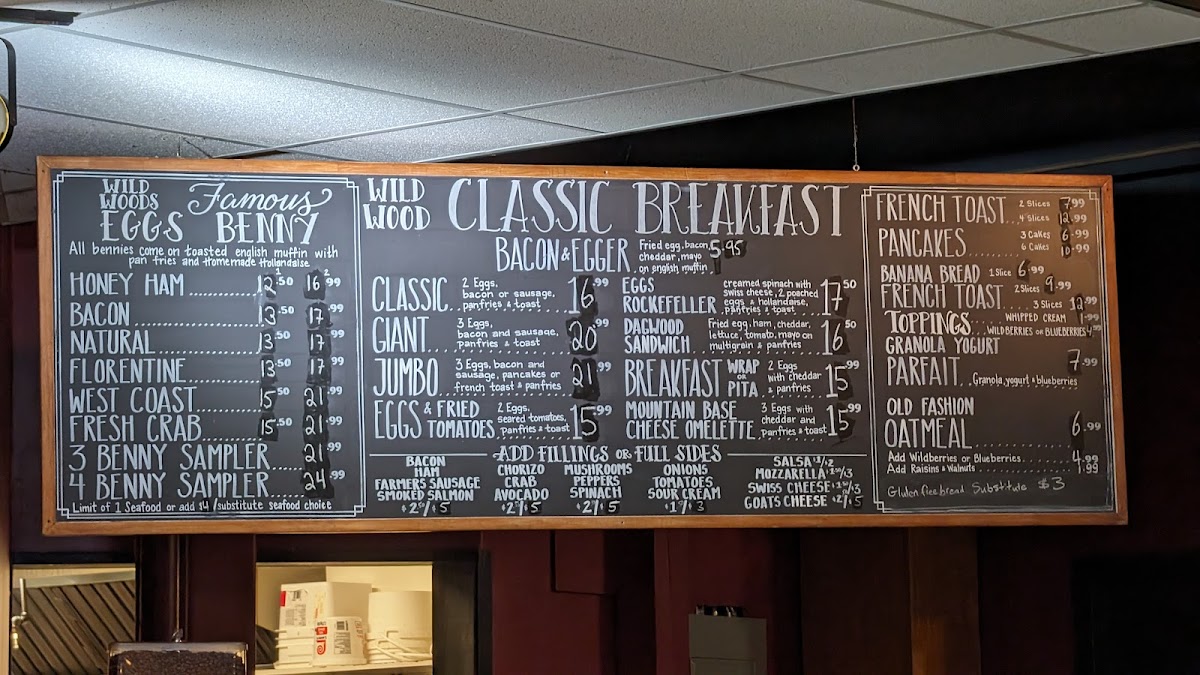 WILD WOODS Famous
EGGS BENNY
All bennies come on toasted english muffin with
pan fries and Homemade Hollandaise
1 2
HONEY HAM 12.50 16.99
BACON 13.50 17.99
NATURAL 13.50 17.99
FLORENTINE 13.50 17.99
WEST COAST 15.50 21.99
FRESH CRAB 15.50 21.99
3 BENNY SAMPLER 21.99
4 BENNY SAMPLER 24.99
Limit of 1 Seafood or add $4/substitute seafood choice
WILD WOOD CLASSIC BREAKFAST
BACON & EGGER Fried egg, bacon, cheddar, mayo on english muffin 5.95
CLASSIC 2 Eggs, bacon or sausage, panfries & toast 16.99
GIANT 3 Eggs, bacon and sausage, panfries & toast 20.99
JUMBO 3 Eggs, bacon and sausage, pancakes or french toast & panfries 21.99
EGGS & FRIED TOMATOES 2 Eggs, seared tomatoes, panfries & toast 15.99
EGGS ROCKEFELLER creamed spinach with swiss cheese, 2 poached eggs & hollandaise, panfries & toast 17.50
DAGWOOD SANDWICH Fried egg, ham, cheddar, lettuce, tomato, mayo on multigrain & panfries 16.50
BREAKFAST WRAP OR PITA 2 Eggs with cheddar & panfries 15.99
MOUNTAIN BASE CHEESE OMELETTE 3 Eggs with cheddar and panfries & toast 15.99
ADD FILLINGS OR FULL SIDES
BACON
HAM
FARMERS SAUSAGE
SMOKED SALMON
CHORIZO
CRAB
AVOCADO
MUSHROOMS
PEPPERS
SPINACH
ONIONS
TOMATOES
SOUR CREAM
SALSA
MOZZARELLA
SWISS CHEESE
GOATS CHEESE
FRENCH TOAST 2 Slices 7.99
4 Slices 12.99
PANCAKES 3 Cakes 6.99
6 Cakes 10.99
BANANA BREAD 1 Slice 6.99
FRENCH TOAST 2 Slices 9.99
3 Slices 12.99
TOPPINGS WHIPPED CREAM 1.99
WILDBERRIES OR BLUEBERRIES 4.99
GRANOLA YOGURT
PARFAIT Granola, yogurt & blueberries 7.99
OLD FASHION
OATMEAL 6.99
Add Wildberries or Blueberries 4.99
Add Raisins & Walnuts 1.99
Gluten free bread Substitute $3